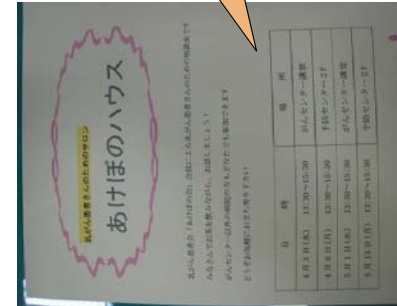 乳がん患者さんのためのサロン
あけぼのハウス
乳がん患者会「あけぼの会」会員による乳がん患者さんのための相談室です
みなさんでお茶を飲みながら、お話しましょう！
がんセンター以外の病院の方もどなたでも参加できます
どうぞお気軽にお立ち寄り下さい
日 時 場 所
4月3日(水) 13:30～15:30 がんセンター講堂
4月8日(月) 13:30～15:30 予防センター2F
5月1日(水) 13:30～15:30 がんセンター講堂
5月13日(月) 13:30～15:30 予防センター2F